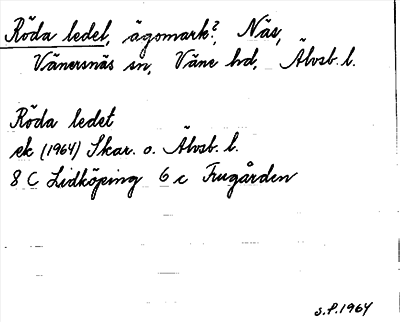 Röda ledet, ägomark?, Näs,
Vänersnäs sn, Väne hd, Älvsb. l.
Röda ledet
ek (1964) Skar. o. Älvsb. l.
8 C Lidköping 6 c Frugården
S.P. 1964